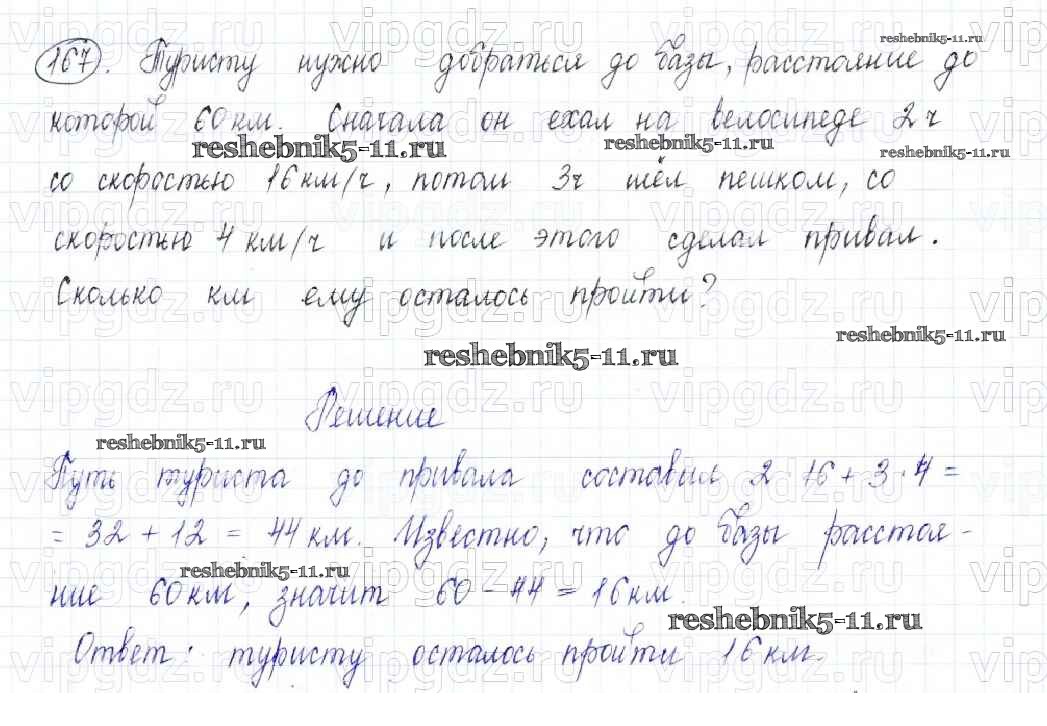 167. Туристу нужно добраться до базы, расстояние до
которой 60 км. Сначала он ехал на велосипеде 2 ч
со скоростью 16 км/ч, потом 3ч шёл пешком, со
скоростью 4 км/ч и после этого сделал привал.
Сколько км ему осталось пройти?
Решение
Путь туриста до привала составил 2 · 16 + 3 · 4 =
= 32 + 12 = 44 км. Известно, что до базы расстоя-
ние 60 км, значит 60 - 44 = 16 км.
Ответ: туристу осталось пройти 16 км.
reshebnik5-11.ru
reshebnik5-11.ru
reshebnik5-11.ru
reshebnik5-11.ru
reshebnik5-11.ru
reshebnik5-11.ru
reshebnik5-11.ru
reshebnik5-11.ru
reshebnik5-11.ru
vipgdz.ru